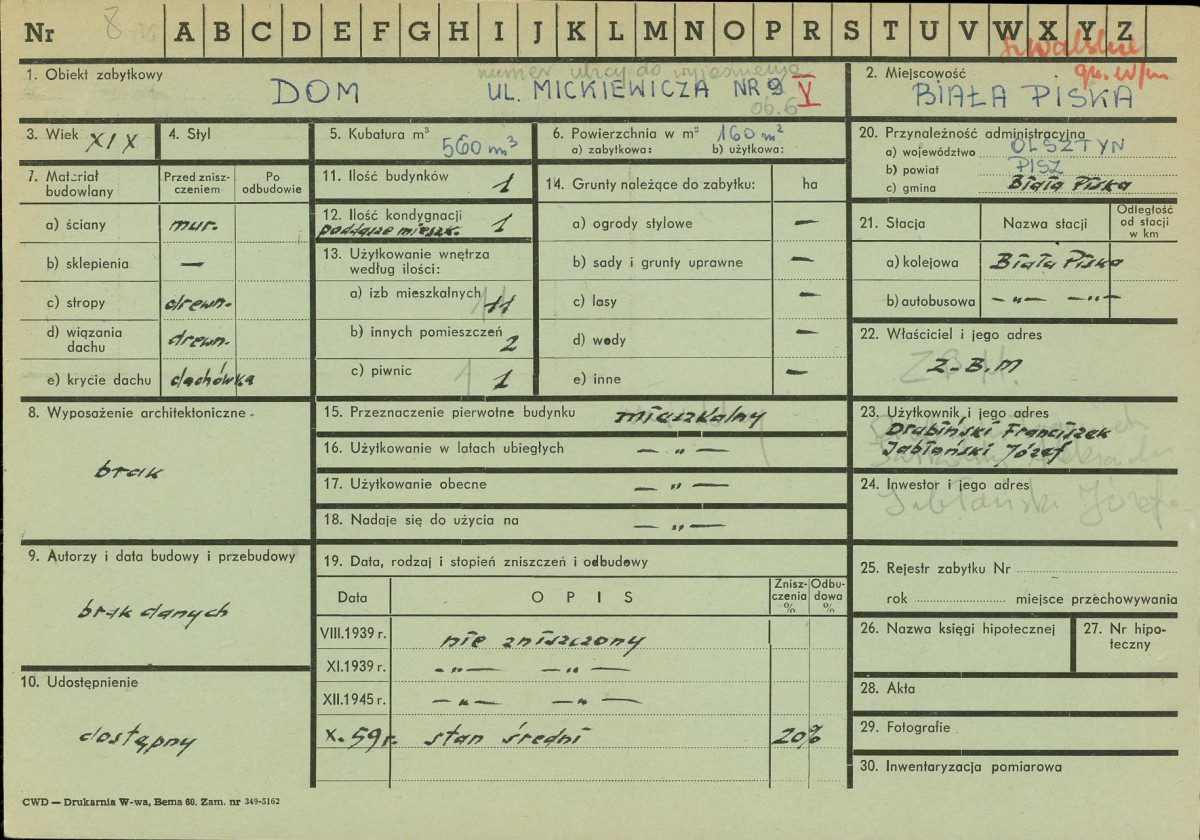 Nr 8 A B C D E F G H I J K L M N O P R S T U V W X Y Z
suwalskie
gm. w/m.
1. Obiekt zabytkowy
numer ulicy do wyjaśnienia
DOM UL. MICKIEWICZA NR 9 V
06.6
2. Miejscowość
BIAŁA PISKA
3. Wiek XIX
4. Styl
5. Kubatura m³
560 m³
6. Powierzchnia w m² 160 m²
a) zabytkowa: b) użytkowa:
20. Przynależność administracyjna
a) województwo OLSZTYN
b) powiat PISZ
c) gmina Biała Piska
7. Materiał budowlany
Przed zniszczeniem
Po odbudowie
a) ściany mur.
b) sklepienia —
c) stropy drewn.
d) wiązania dachu drewn.
e) krycie dachu dachówka
11. Ilość budynków 1
12. Ilość kondygnacji 1
poddasze mieszk.
13. Użytkowanie wnętrza
według ilości:
a) izb mieszkalnych 11
b) innych pomieszczeń 2
c) piwnic 1
14. Grunty należące do zabytku: ha
a) ogrody stylowe —
b) sady i grunty uprawne —
c) lasy —
d) wody —
e) inne —
21. Stacja
Nazwa stacji
Odległość od stacji w km
a) kolejowa Biała Piska
b) autobusowa — „ — — „ —
22. Właściciel i jego adres
Z.B.M.
Z.B.M
8. Wyposażenie architektoniczne
brak
15. Przeznaczenie pierwotne budynku mieszkalny
16. Użytkowanie w latach ubiegłych — „ —
17. Użytkowanie obecne — „ —
18. Nadaje się do użycia na — „ —
23. Użytkownik i jego adres
Drabiński Franciszek
Jabłoński Józef
24. Inwestor i jego adres
Jabłoński Józef
9. Autorzy i data budowy i przebudowy
brak danych
10. Udostępnienie
dostępny
19. Data, rodzaj i stopień zniszczeń i odbudowy
Data
OPIS
Zniszczenia %
Odbudowa %
VIII.1939 r. nie zniszczony
XI.1939 r. — „ — — „ —
XII.1945 r. — „ — — „ —
X. 59 r. stan średni 20%
25. Rejestr zabytku Nr
rok miejsce przechowywania
26. Nazwa księgi hipotecznej
27. Nr hipoteczny
28. Akta
29. Fotografie
30. Inwentaryzacja pomiarowa
CWD — Drukarnia W-wa, Bema 60. Zam. nr 349-5162